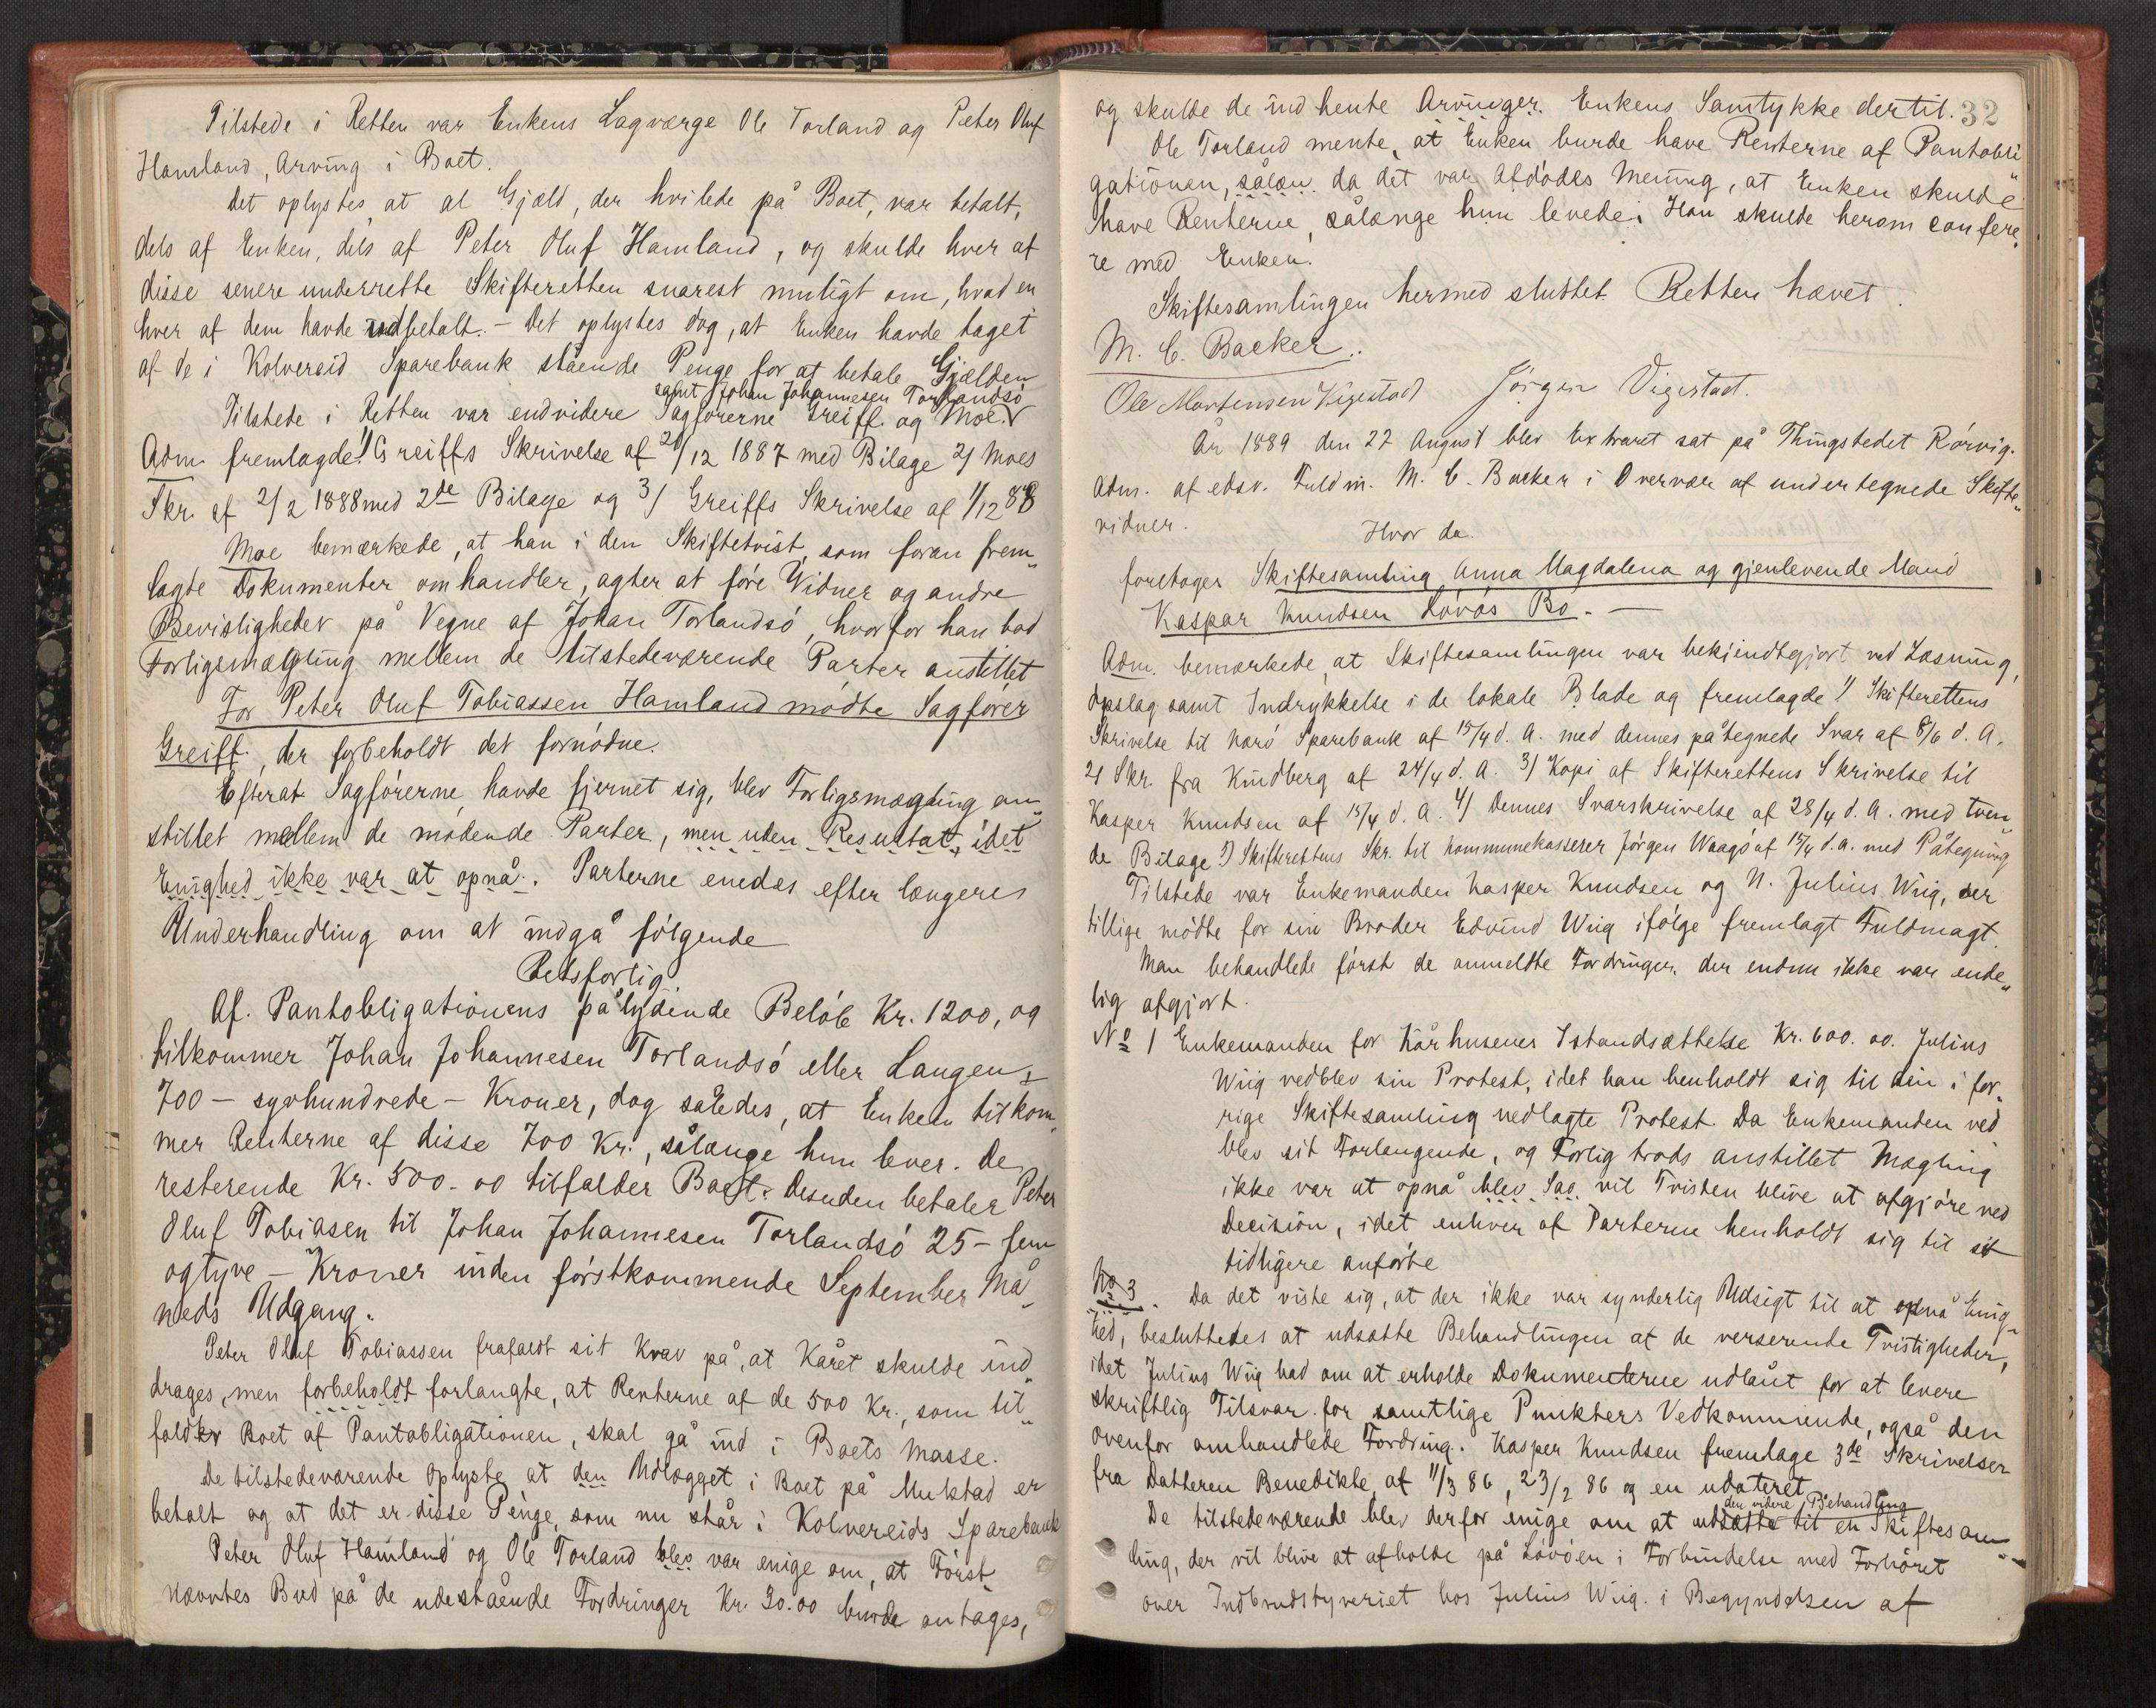 Tilstede i Retten var Enkens Lagværge Ole Torland og Peter Oluf
Hamland, Arving i Boet.
Det oplystes, at al Gjæld, der hvilede på Boet, var betalt,
dels af Enken, dels af Peter Oluf Hamland, og skulde hver af
disse senere underrette Skifteretten snarest muligt om, hvad en
hver af dem havde udbetalt. - Det oplystes dog, at Enken havde taget
af de i Kolvereid Sparebank stående Penge for at betale Gjælden
samt Johan Johannesen Torlandsö
Tilstede i Retten var endvidere Sagförerne Greiff og Moe.
Adm. fremlagde 1) Greiffs Skrivelse af 20/12 1887 med Bilage 2) Moes
Skr. af 2/2 1888 med 2de Bilage og 3) Greiffs Skrivelse af 1/12 88
Moe bemærkede, at han i den Skiftetvist, som foran frem„
lagte Dokumenter omhandler, agter at före Vidner og andre
Bevisligheder på Vegne af Johan Torlandsö, hvorfor han bad
Forligsmægling mellem de tilstedeværende Parter anstillet
For Peter Oluf Tobiassen Hamland mödte Sagförer
Greiff, der forbeholdt det fornödne.
Efterat Sagförerne havde fjernet sig, blev Forligsmægling an„
stillet mellem de mödende Parter, men uden Resultat, idet
Enighed ikke var at opnå. Parterne enedes efter længere
Underhandling om at indgå fölgende
Retsforlig
Af Pantobligationens pålydende Belöb Kr. 1200, og
tilkommer Johan Johannesen Torlandsö eller Langen
700 - syvhundrede - Kroner, dog således, at Enken tilkom„
mer Renterne af disse 700 Kr., sålænge hun lever. De
resterende Kr. 500.00 tilfalder Boet. Desuden betaler Peter
Oluf Tobiasen til Johan Johannesen Torlandsö 25 - fem
ogtyve - Kroner inden förstkommende September Må„
neds Udgang.
Peter Oluf Tobiassen frafaldt sit Krav på, at Kåret skulde ind„
drages, men forbeholdt forlangte, at Renterne af de 500 Kr., som til„
falder Boet af Pantobligationen, skal gå ind i Boets Masse.
De tilstedeværende oplyste at den Udlægget i Boet på Muktad er
betalt og at det er disse Penge, som nu står i Kolvereids Sparebank
Peter Oluf Hamland og Ole Torland blev var enige om, at Först„
nævntes Bud på de udestående Fordringer Kr. 30.00 burde antages,
32
og skulde de indhente Arvinger. Enkens Samtykke dertil.
Ole Torland mente, at Enken burde have Renterne af Pantobli„
gationen, sålæn. da det var Afdödes Mening, at Enken skulde
have Renterne, sålænge hun levede. Han skulde herom confere„
re med Enken.
Skiftesamlingen hermed sluttet. Retten hævet.
M. C. Backer.
Ole Mortensen Vigestad Jörgen Vigestad.
År 1889 den 22 August blev Extraret sat på Thingstedet Rörvig.
Adm. af edsv. Fuldm. M. C. Backer i Overvær af undertegnede Skifte„
vidner.
Hvor da
foretoges Skiftesamling Anna Magdalena og gjenlevende Mand
Kaspar Knudsen Lövås Bo. -
Adm. bemærkede, at Skiftesamlingen var bekjendtgjort ved Læsning,
Opslag samt Indrykkelse i de lokale Blade og fremlagde 1) Skifterettens
Skrivelse til Nærö Sparebank af 15/4 d. A. med dennes påtegnede Svar af 8/6 d. A.
2) Skr. fra Kindberg af 24/4 d. A. 3) Kopi af Skifterettens Skrivelse til
Kasper Knudsen af 15/4 d. A. 4) Dennes Svarskrivelse af 28/4 d. A. med tven„
de Bilage 5) Skifterettens Skr. til Kommunekasserer Jörgen Waagö af 15/4 d. A. med Påtegning
Tilstede var Enkemanden Kasper Knudsen og N. Julius Wiig, der
tillige mödte for sin Broder Edvind Wiig ifölge fremlagt Fuldmagt.
Man behandlede först de anmeldte Fordringer, der endnu ikke var ende„
lig afgjort.
No 1 Enkemanden for Kårhusenes Istandsættelse Kr. 600.00. Julius
Wiig vedblev sin Protest, idet han henholdt sig til sin i for„
rige Skiftesamling nedlagte Protest. Da Enkemanden ved
blev sit Forlangende, og Forlig trods anstillet Mægling
ikke var at opnå blev Sag. vil Tvisten blive at afgjöre ved
Decision, idet enhver af Parterne henholdt sig til sit
tidligere anförte
No 3. Da det viste sig, at der ikke var synderlig Udsigt til at opnå Enig„
hed, besluttedes at udsætte Behandlingen af de verserende Tvistigheder,
idet Julius Wiig bad om at erholde Dokumenterne udlånt for at levere
skriftlig Tilsvar for samtlige Punkters Vedkommende, også den
ovenfor omhandlede Fordring. Kasper Knudsen fremlage 3de Skrivelser
fra Datteren Benedikte af 11/3 86, 23/2 86 og en udateret
den videre Behandling
De tilstedeværende blev derfor enige om at udsætte til en Skiftesam„
ling, der vil blive at afholde på Lövöen i Forbindelse med Forhöret
over Indbrudstyveriet hos Julius Wiig i Begyndelsen af